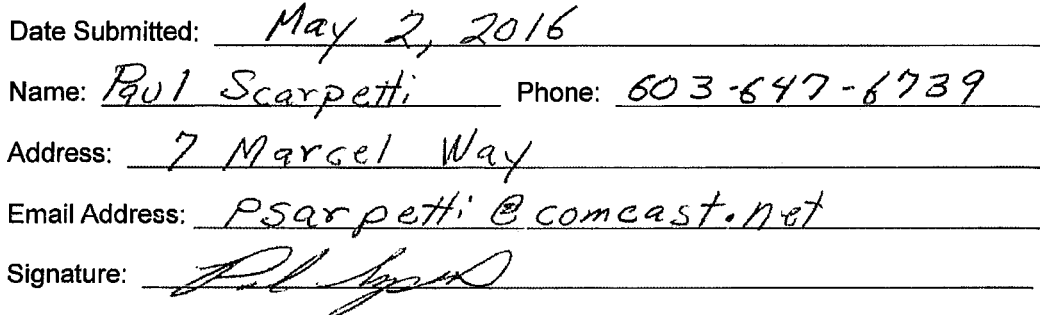 Date Submitted: May 2, 2016
Name: Paul Scarpetti Phone: 603-647-6739
Address: 7 Marcel Way
Email Address: psarpetti@comcast.net
Signature: